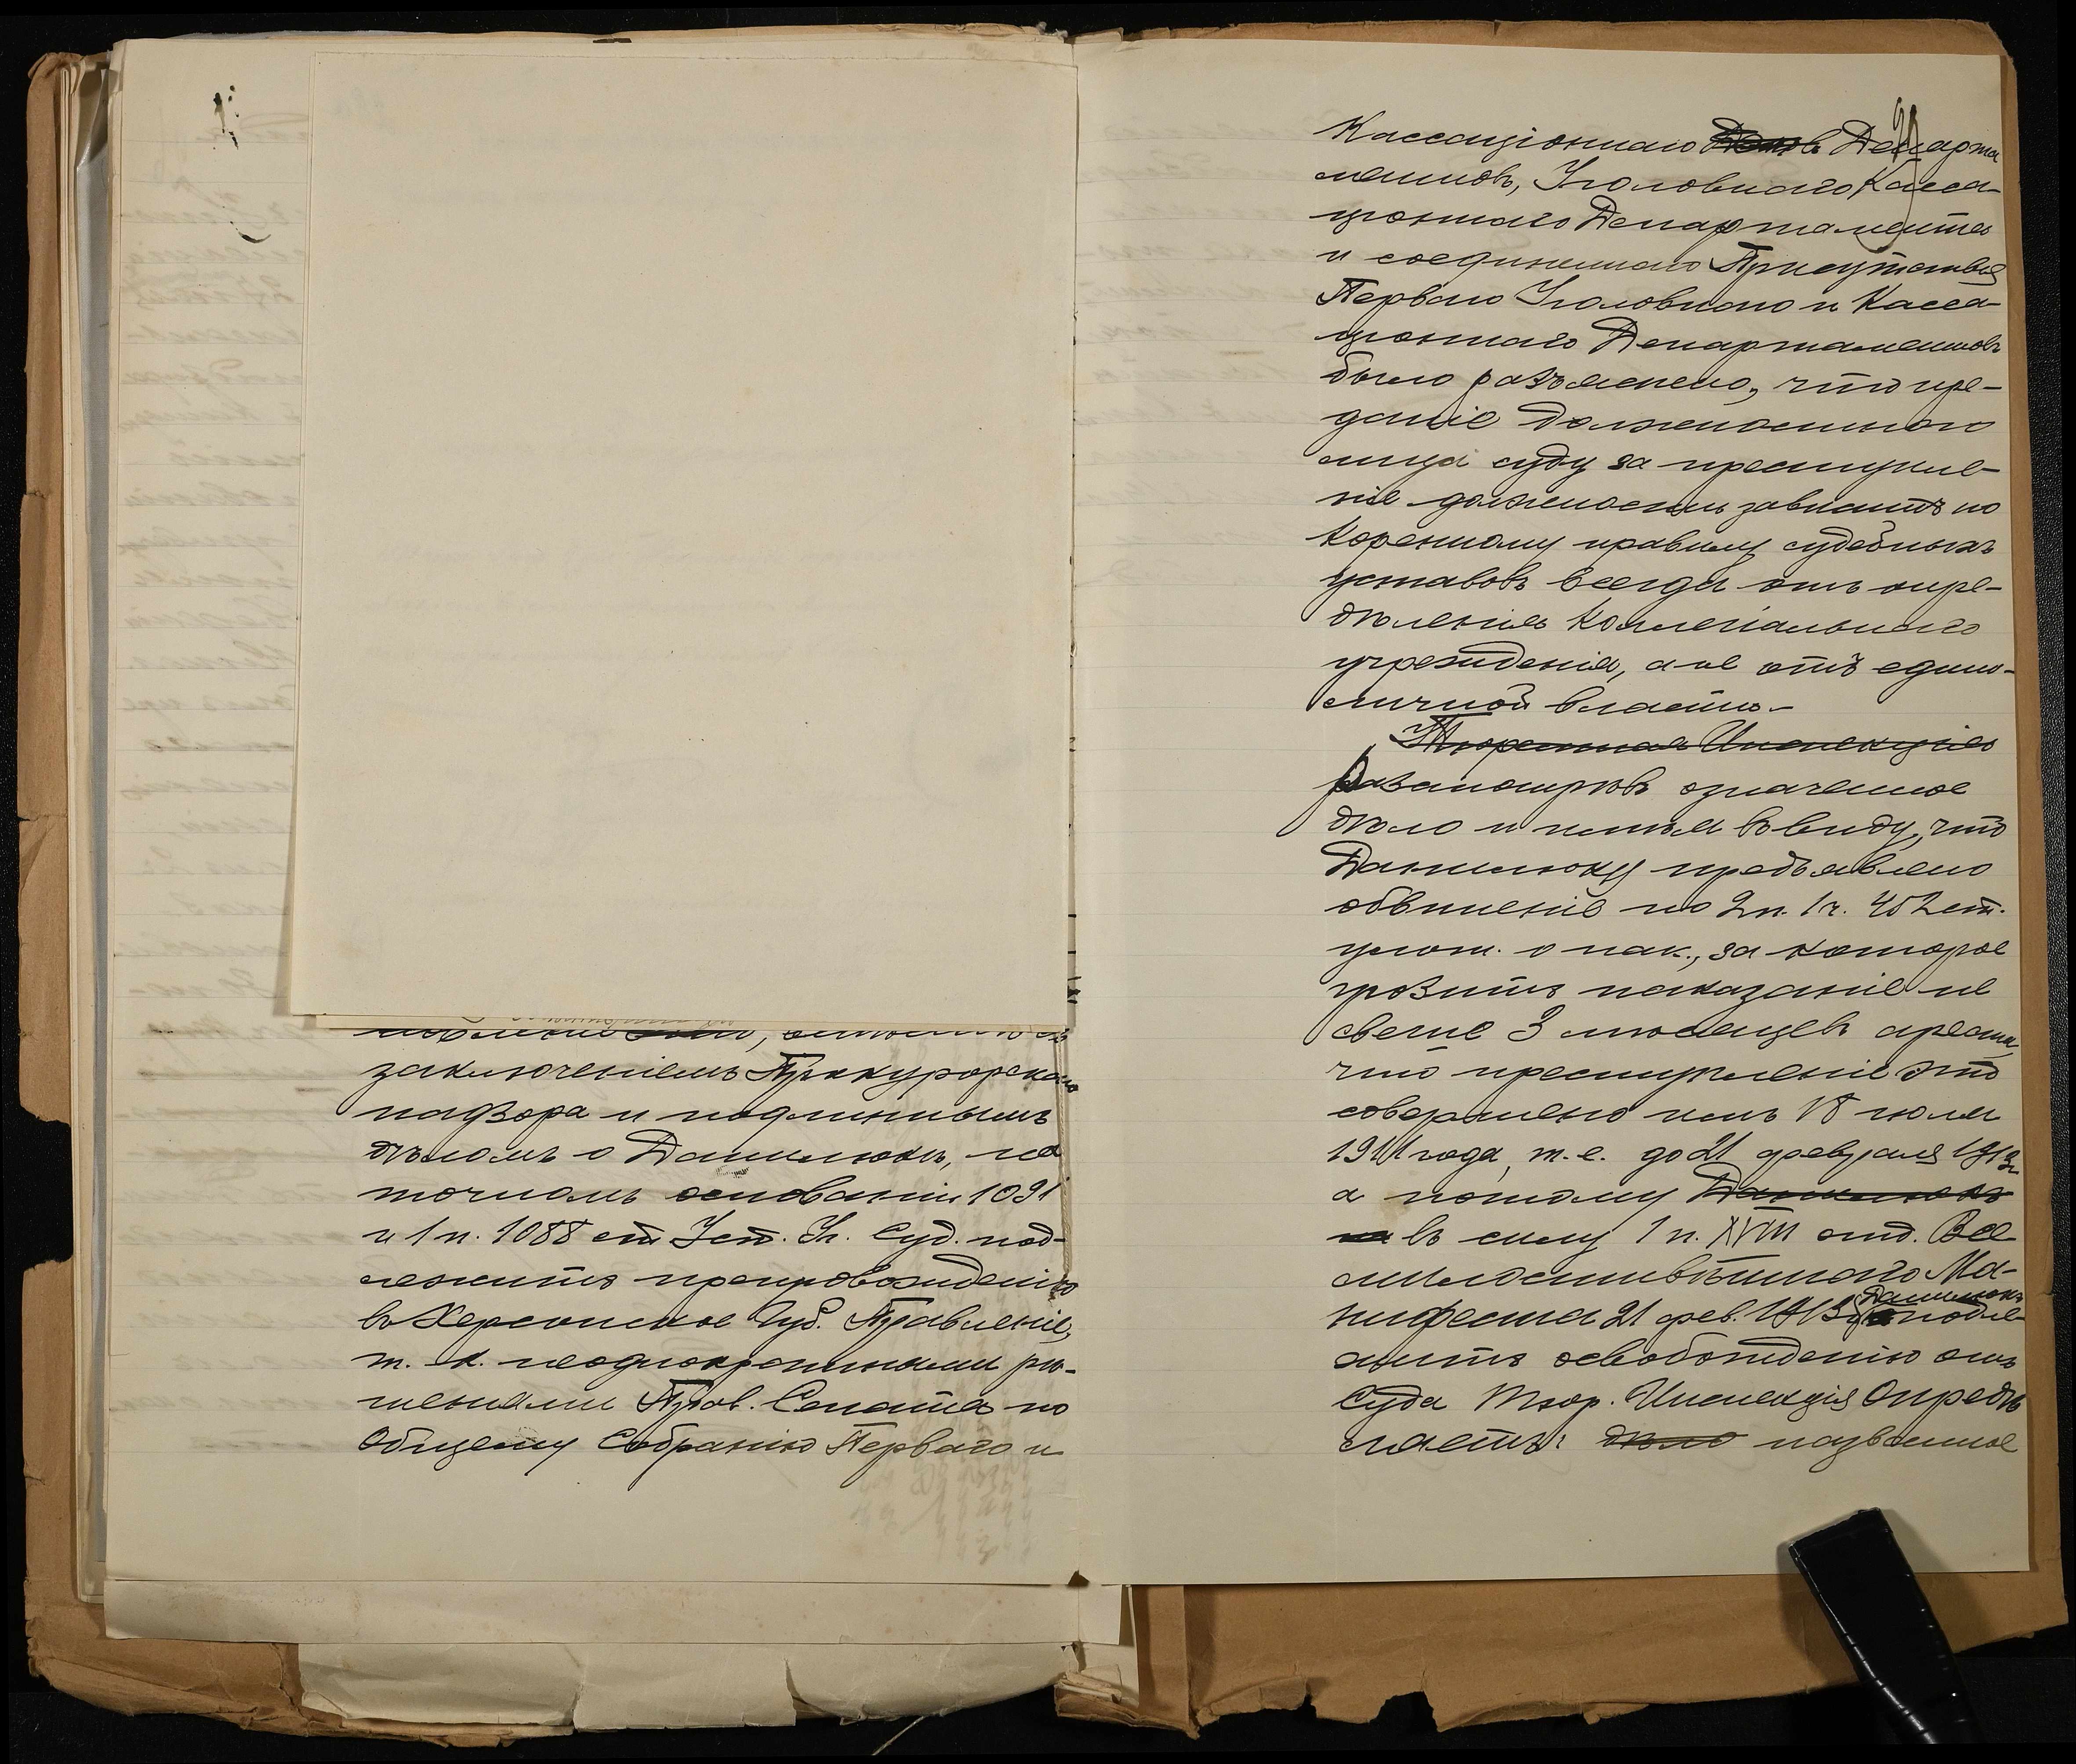 заключеніемъ Прокурорскаго
надзора и подлиннымъ
дѣломъ о Данилюкѣ, на
точномъ основаніи 1091
и 1 п. 1088 ст. Уст. Уг. Суд. под-
лежитъ препровожденію
въ Херсонское Губ. Правленіе,
т. к. неоднократными рѣ-
шеніями Прав. Сената по
Общему Собранію Перваго и
Кассаціоннаго Департа
ментовъ, Уголовнаго Касса-
ціоннаго Департамента
и соединеннаго Присутствія
Перваго Уголовнаго и Касса-
ціоннаго Департаментовъ
было разъяснено, что пре-
даніе должностного
лица суду за преступле-
ніе должности зависитъ по
коренному правилу судебныхъ
уставовъ всегда отъ опре-
дѣленія коллегіальнаго
учрежденія, а не отъ едино-
личной власти.-
Тюремная Инспекція
разсмотрѣвъ означенное
дѣло и имѣя въ виду, что
Данилюку предъявлено
обвиненіе по 2 п. 1 ч. 452 ст.
улож. о нак., за которое
грозитъ наказаніе не
свыше 3 мѣсяцевъ ареста,
что преступленіе это
совершено имъ 18 іюля
1911 года, т.е. до 21 февраля 1913 г.
а потому Данилюкъ
въ силу 1 п. XVIII отд. Все
милостивѣйшаго Ма-
нифеста 21 фев. 1913 г. Данилюкъ подле-
житъ освобожденію отъ
суда Тюр. Инспекція Опредѣ
ляетъ: дѣло названное